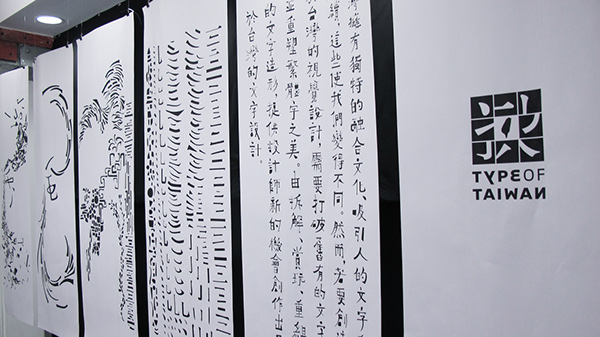 擁有獨特的融合文化、吸引人的文字
續，這些使我們變得不同。然而，若要創
台灣的視覺設計，需要打破舊有的文字
並重塑繁體字之美。由拆解、賞玩、重組
的文字造形，提供設計師新的機會創作出
於台灣的文字設計。
TYPEOF
TAIWAN